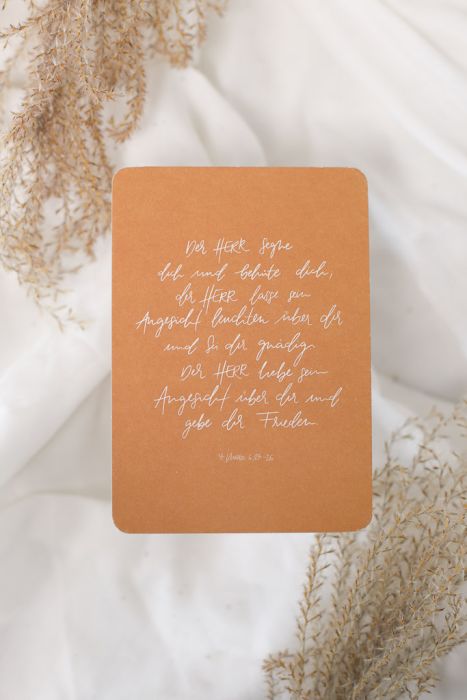 Der HERR segne
dich und behüte dich,
der HERR lasse sein
Angesicht leuchten über dir
und sei dir gnädig.
Der HERR hebe sein
Angesicht über dir und
gebe dir Frieden
4. Mose 6,24-26